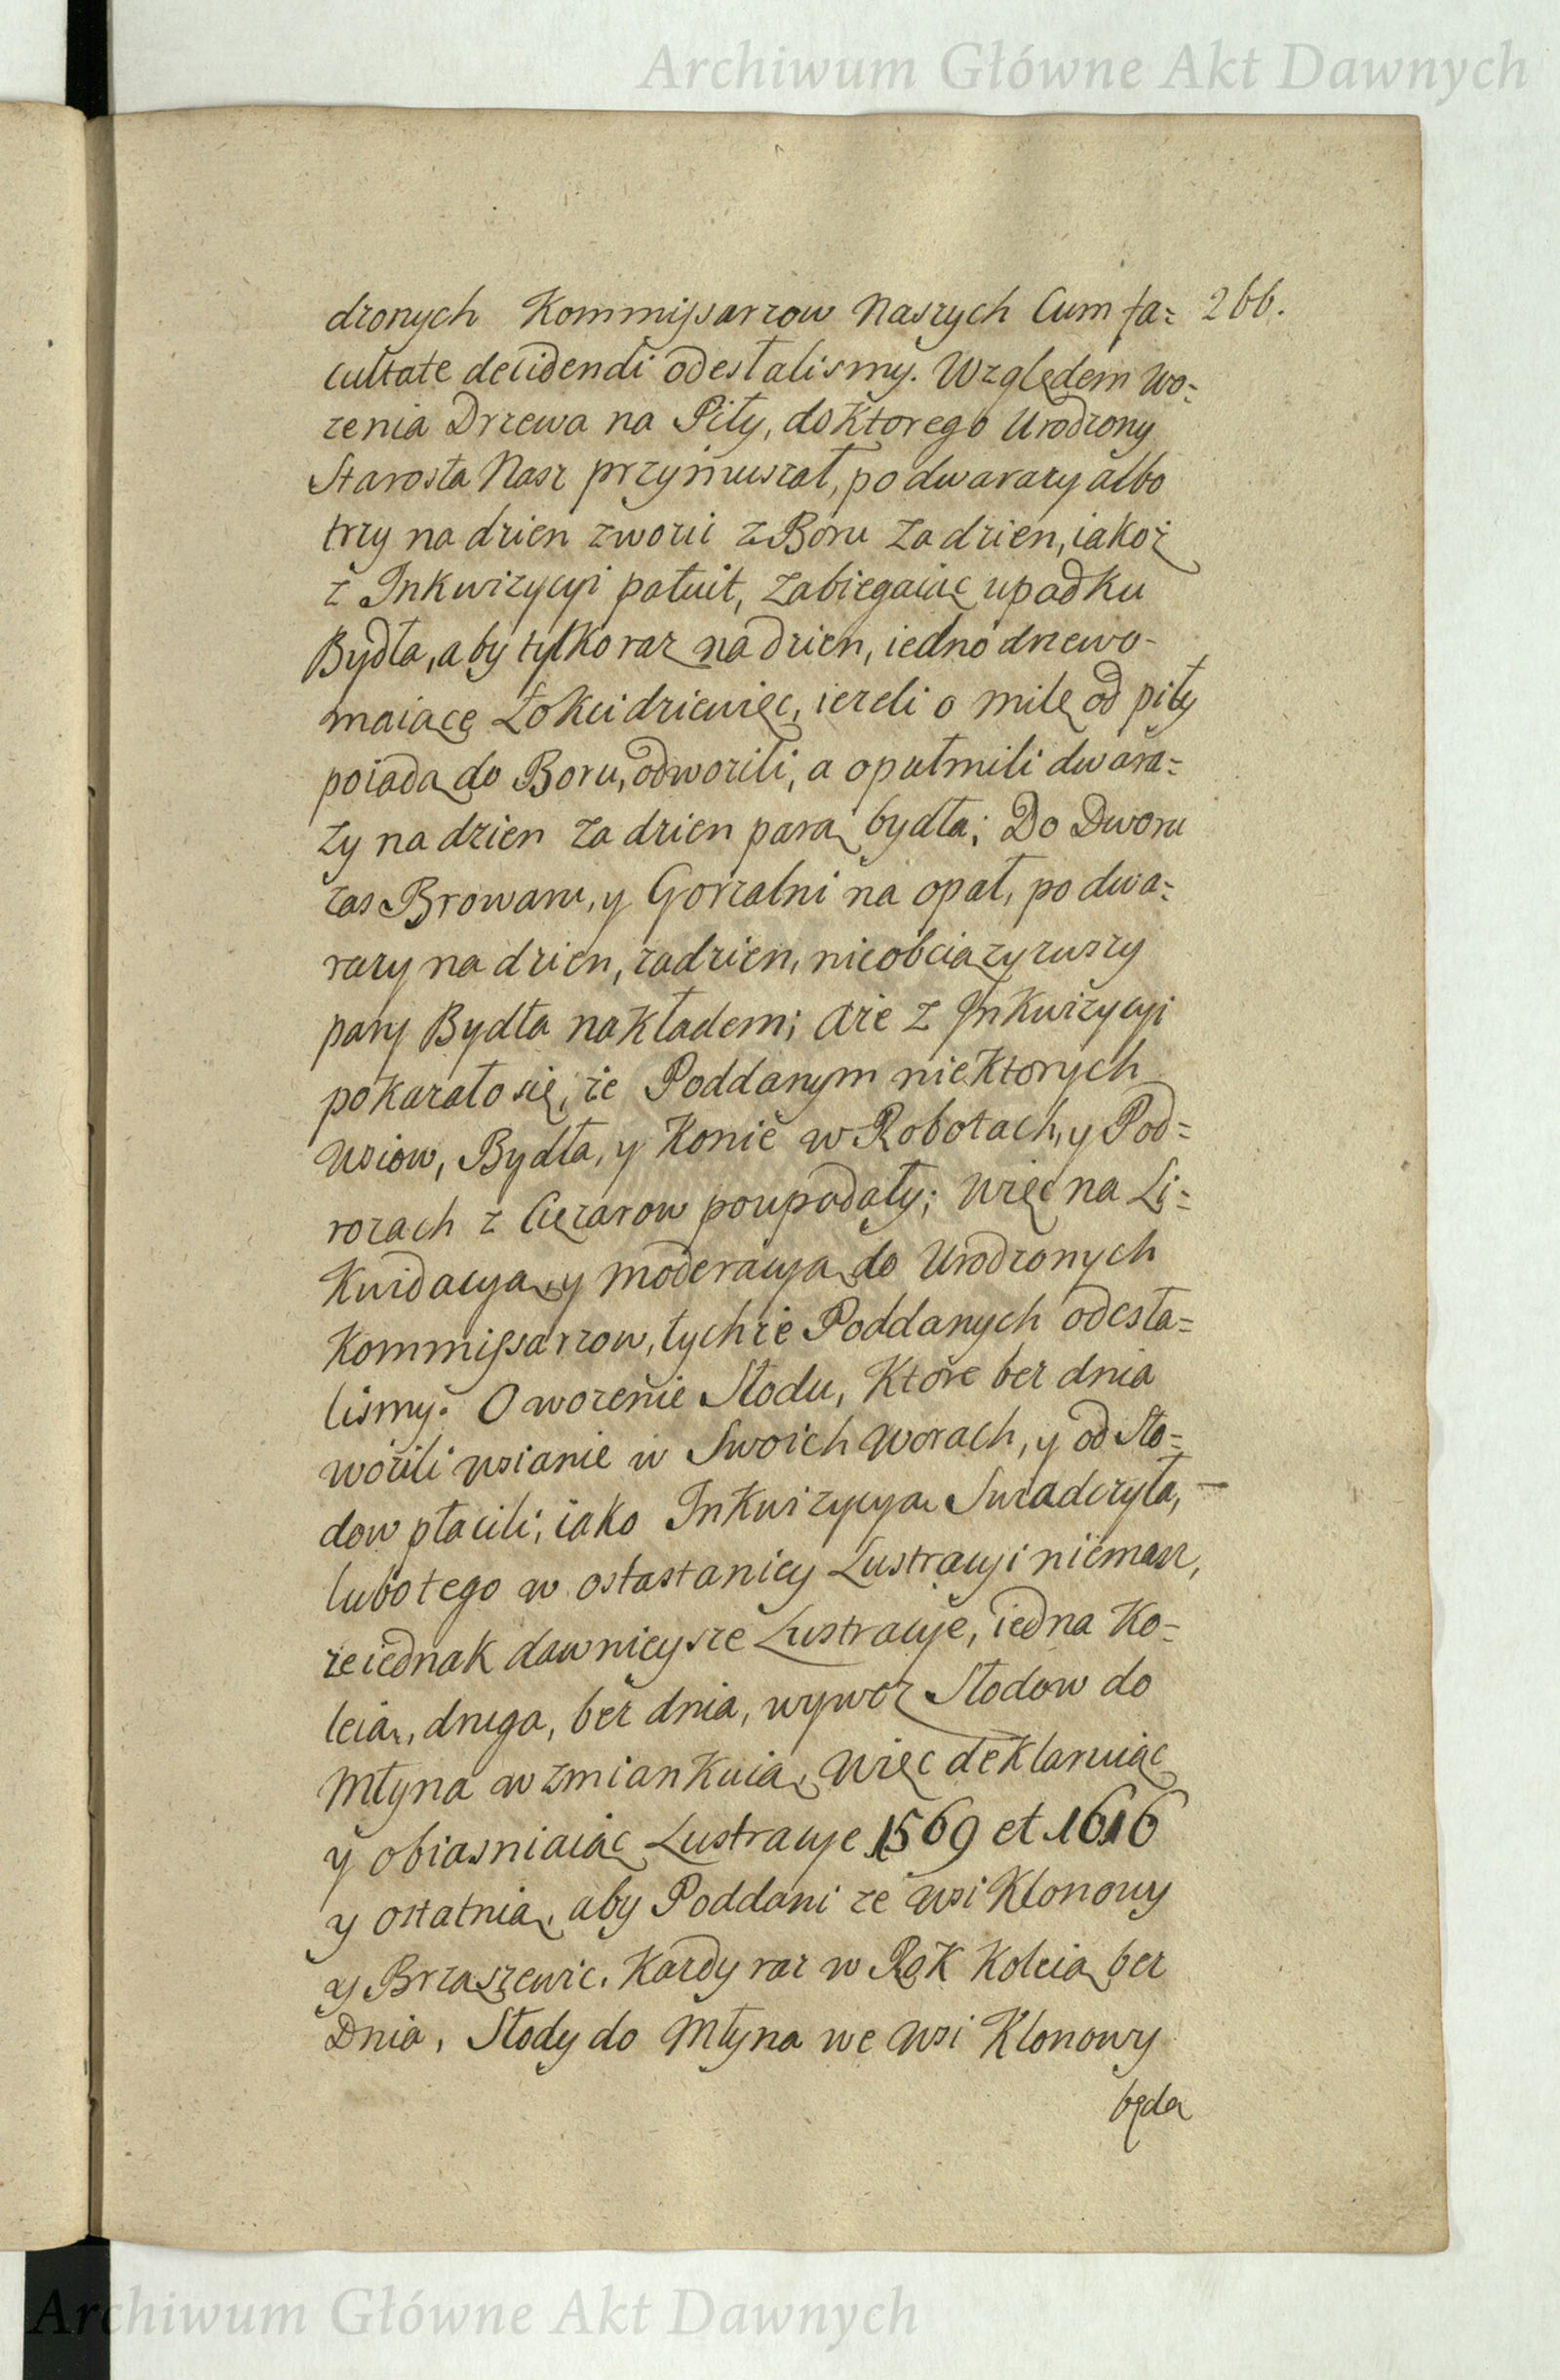 Archiwum Główne Akt Dawnych
dzonych Kommissarzow Naszych Cum fa= 266.
cultate decidendi odesłalismy. Względem wo=
zenia Drzewa na Piły, do ktorego Urodzony
Starosta Nasz przymuszał, po dwa razy albo
trzy na dzien zwozic z Boru za dzien, iakoż
z Inkwizycyi patuit, zabiegaiąc upadku
Bydła, aby tylko raz na dzien, iedno drzewo
maiące Łokci dziewięc, iezeli o milę od piły
poiadą do Boru, odwozili, a o pułmili dwa ra=
zy na dzien za dzien parą bydła; Do Dworu
zas Browaru, y Gorzalni na opał, po dwa=
razy na dzien, za dzien, nieobciązywszy
pary Bydła nakładem; A że z Inkwizycyi
pokazało się, że Poddanym niektorych
wsiow, Bydła, y Konie w Robotach, y Pod=
rozach z Cięzarow poupadały; więc na Li=
kwidacyą, y moderacyą do Urodzonych
Kommissarzow, tychże Poddanych odesła=
lismy. O wozenie Słodu, Ktore bez dnia
wozili wsianie w Swoich worach, y od Sło=
dow płacili, iako Inkwizycya Swiadczyła,
lubo tego w ostastanicy Lustracyi niemasz,
że iednak dawnieysze Lustracye, iedna Ko=
leią, druga, bez dnia, wywoz Słodow do
Młyna wzmiankuią, więc deklaruiąc
y obiasniaiąc Lustracye 1569 et 1616
y ostatnią, aby Poddani ze wsi Klonowy
y Brzaszewic. Kazdy raz w Rok Koleią bez
Dnia, Słody do Młyna we wsi Klonowy
będą
Archiwum Główne Akt Dawnych